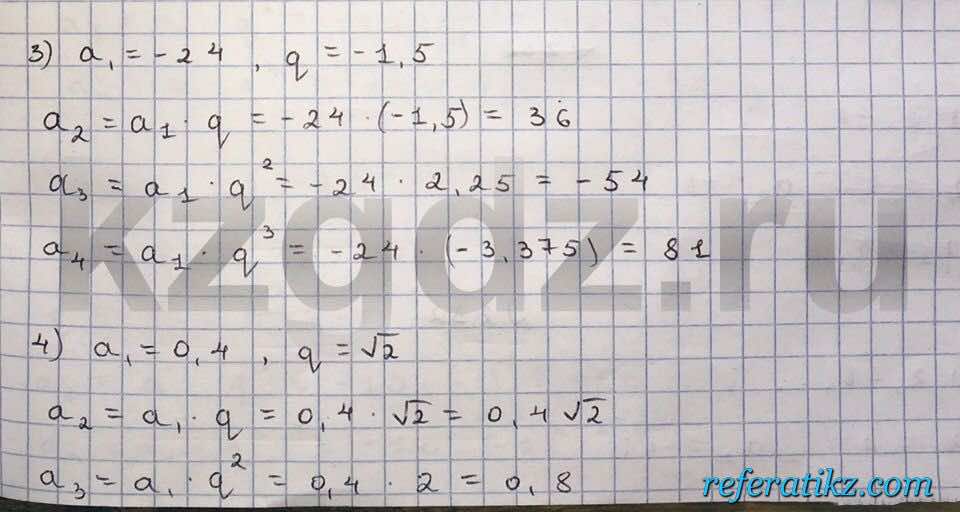 3) a₁ = -24 , q = -1,5
a₂ = a₁ · q = -24 · (-1,5) = 36
a₃ = a₁ · q² = -24 · 2,25 = -54
a₄ = a₁ · q³ = -24 · (-3,375) = 81
kzgdz.ru
4) a₁ = 0,4 , q = √2
a₂ = a₁ · q = 0,4 · √2 = 0,4√2
a₃ = a₁ · q² = 0,4 · 2 = 0,8
referatikz.com